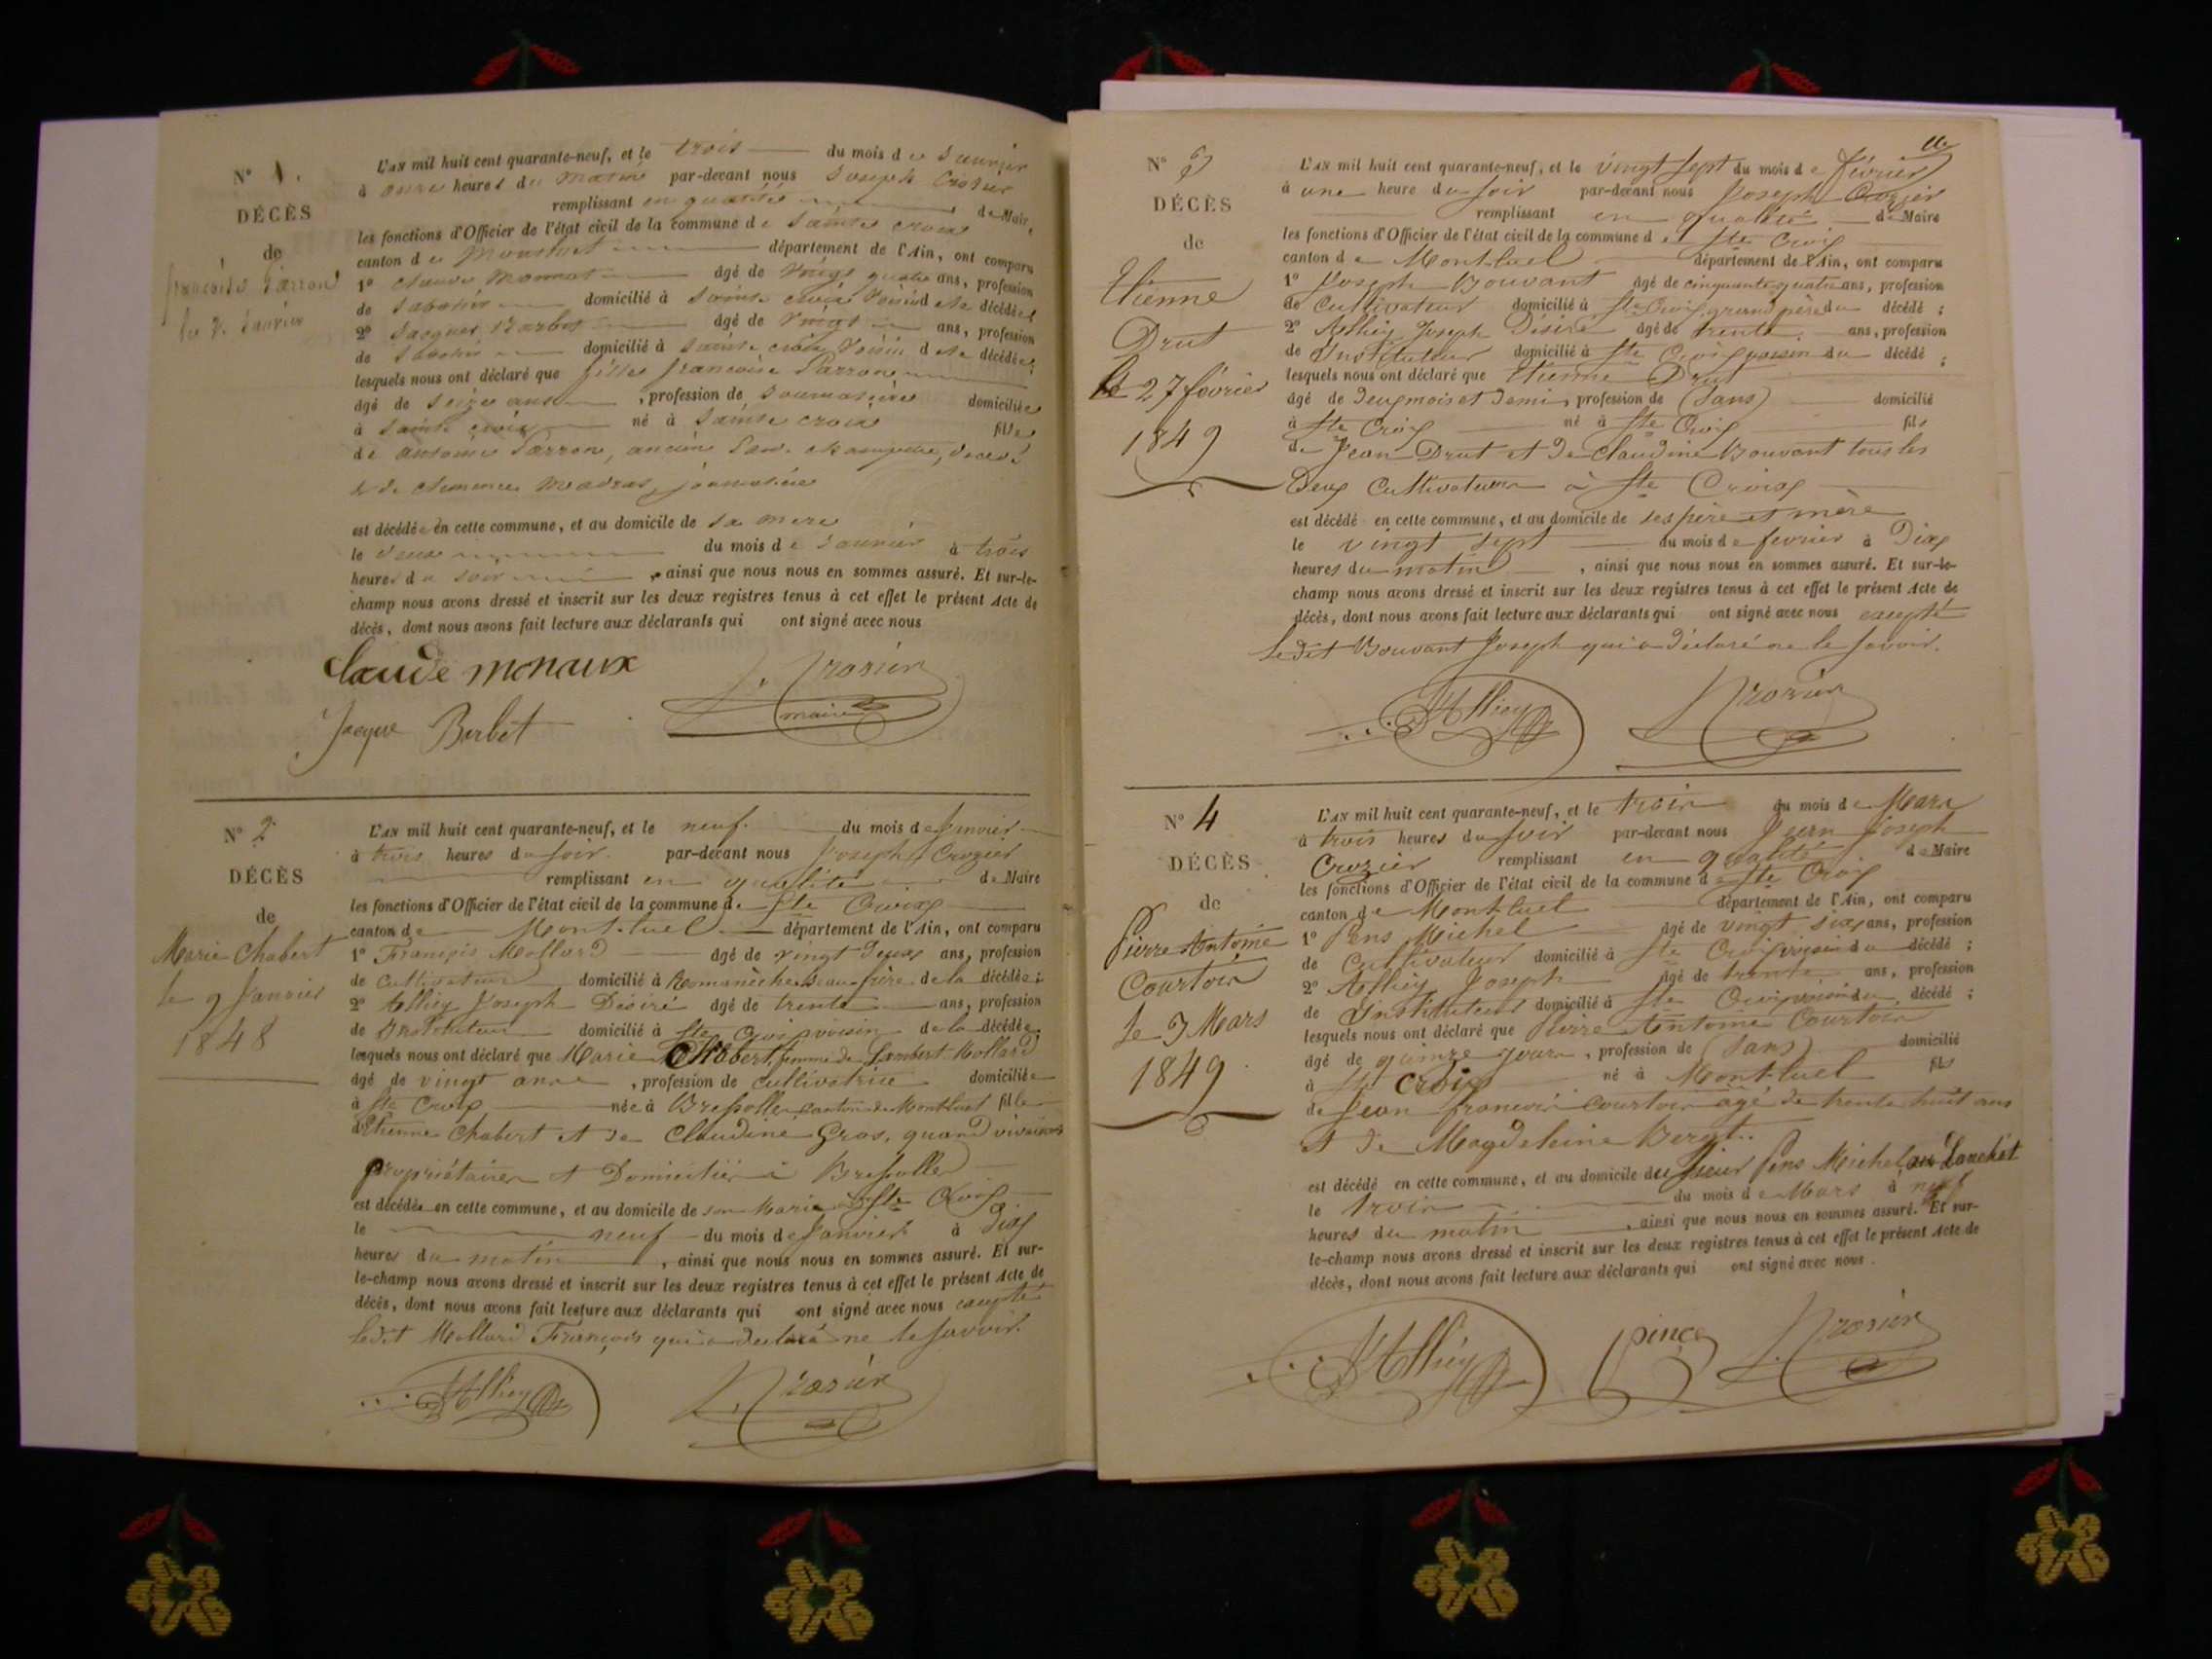 N° 1.
DÉCÈS
de
françoise Parron
le 2 Janvier
L'AN mil huit cent quarante-neuf, et le trois du mois de Janvier
à onze heures du matin par-devant nous Joseph Crozier
remplissant en qualité de Maire,
les fonctions d'Officier de l'état civil de la commune de Sainte croix
canton de Montluel département de l'Ain, ont comparu
1° claude Monnat âgé de vingt quatre ans, profession
de Sabotier domicilié à Sainte croix voisin de la décédée
2° Jacques Barbet âgé de vingt ans, profession
de Sabotier domicilié à Sainte croix voisin de la décédée;
lesquels nous ont déclaré que fille françoise Parron
âgé de Seize ans, profession de Journalière domiciliée
à Sainte croix né à Sainte croix fille
de antoine Parron, ancien Garde champetre, décédé
& de clemence journalière
est décédée en cette commune, et au domicile de Sa mere
le deux du mois de Janvier à trois
heures du soir, ainsi que nous nous en sommes assuré. Et sur-le-
champ nous avons dressé et inscrit sur les deux registres tenus à cet effet le présent Acte de
décès, dont nous avons fait lecture aux déclarants qui ont signé avec nous
Claude monaux
Jacque Berbet
J. Crozier
maire
N° 2
DÉCÈS
de
Marie Chabert
le 9 Janvier
1848
L'AN mil huit cent quarante-neuf, et le neuf du mois de Janvier
à trois heures du soir par-devant nous Joseph Crozier
remplissant en qualité de Maire
les fonctions d'Officier de l'état civil de la commune de Ste Croix
canton de Mont-luel département de l'Ain, ont comparu
1° François Mollard âgé de vingt deux ans, profession
de Cultivateur domicilié à Romanèche beau-frère de la décédée;
2° Alliey Joseph Désiré âgé de trente ans, profession
de Instituteur domicilié à Ste Croix voisin de la décédée
lesquels nous ont déclaré que Marie Chabert, femme de Lambert Mollard
âgé de vingt ans, profession de Cultivatrice domiciliée
à Ste Croix née à Bressolle canton de Montluel fille
d'Etienne Chabert et de Claudine Gros, quand vivaient
propriétaires et Domiciliés à Bressolle
est décédée en cette commune, et au domicile de son Mari à Ste Croix
le neuf du mois de Janvier à Dix
heures du matin, ainsi que nous nous en sommes assuré. Et sur-
le-champ nous avons dressé et inscrit sur les deux registres tenus à cet effet le présent Acte de
décès, dont nous avons fait lecture aux déclarants qui ont signé avec nous excepté
ledit Mollard François qui a déclaré ne le savoir.
JAlliey
J. Crozier
N° 3
DÉCÈS
de
Etienne
Drut
le 27 février
1849
L'AN mil huit cent quarante-neuf, et le vingt sept du mois de février
à une heure du soir par-devant nous Joseph Crozier
remplissant en qualité de Maire
les fonctions d'Officier de l'état civil de la commune de Ste Croix
canton de Mont-luel département de l'Ain, ont comparu
1° Joseph Bouvant âgé de cinquante quatre ans, profession
de Cultivateur domicilié à Ste Croix, grand père du décédé;
2° Alliey Joseph Désiré âgé de trente ans, profession
de Instituteur domicilié à Ste Croix voisin du décédé;
lesquels nous ont déclaré que Etienne Drut
âgé de deux mois et demi, profession de (sans) domicilié
à Ste Croix né à Ste Croix fils
de Jean Drut et de Claudine Bouvant tous les
Deux Cultivateurs à Ste Croix
est décédé en cette commune, et au domicile de ses père et mère
le vingt sept du mois de fevrier à Dix
heures du matin, ainsi que nous nous en sommes assuré. Et sur-le-
champ nous avons dressé et inscrit sur les deux registres tenus à cet effet le présent Acte de
décès, dont nous avons fait lecture aux déclarants qui ont signé avec nous excepté
ledit Bouvant Joseph qui a déclaré ne le savoir.
JAlliey
J. Crozier
N° 4
DÉCÈS
de
Pierre Antoine
Courtois
le 3 Mars
1849
L'AN mil huit cent quarante-neuf, et le trois du mois de Mars
à trois heures du soir par-devant nous Jean Joseph
Crozier remplissant en qualité de Maire
les fonctions d'Officier de l'état civil de la commune de Ste Croix
canton de Mont-luel département de l'Ain, ont comparu
1° Pens Michel âgé de vingt six ans, profession
de Cultivateur domicilié à Ste Croix voisin du décédé;
2° Alliey Joseph âgé de trente ans, profession
de Instituteur domicilié à Ste Croix voisin du décédé;
lesquels nous ont déclaré que Pierre Antoine Courtois
âgé de quinze jours, profession de (sans) domicilié
à Ste Croix né à Mont-luel fils
de Jean francois Courtois agé de trente huit ans
et de Magdeleine
est décédé en cette commune, et au domicile du sieur Pens Michel, au Louchet
le trois du mois de Mars à neuf
heures du matin, ainsi que nous nous en sommes assuré. Et sur-
le-champ nous avons dressé et inscrit sur les deux registres tenus à cet effet le présent Acte de
décès, dont nous avons fait lecture aux déclarants qui ont signé avec nous.
JAlliey
J. Crozier